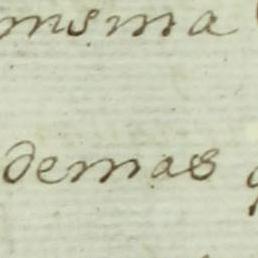 misma
demas